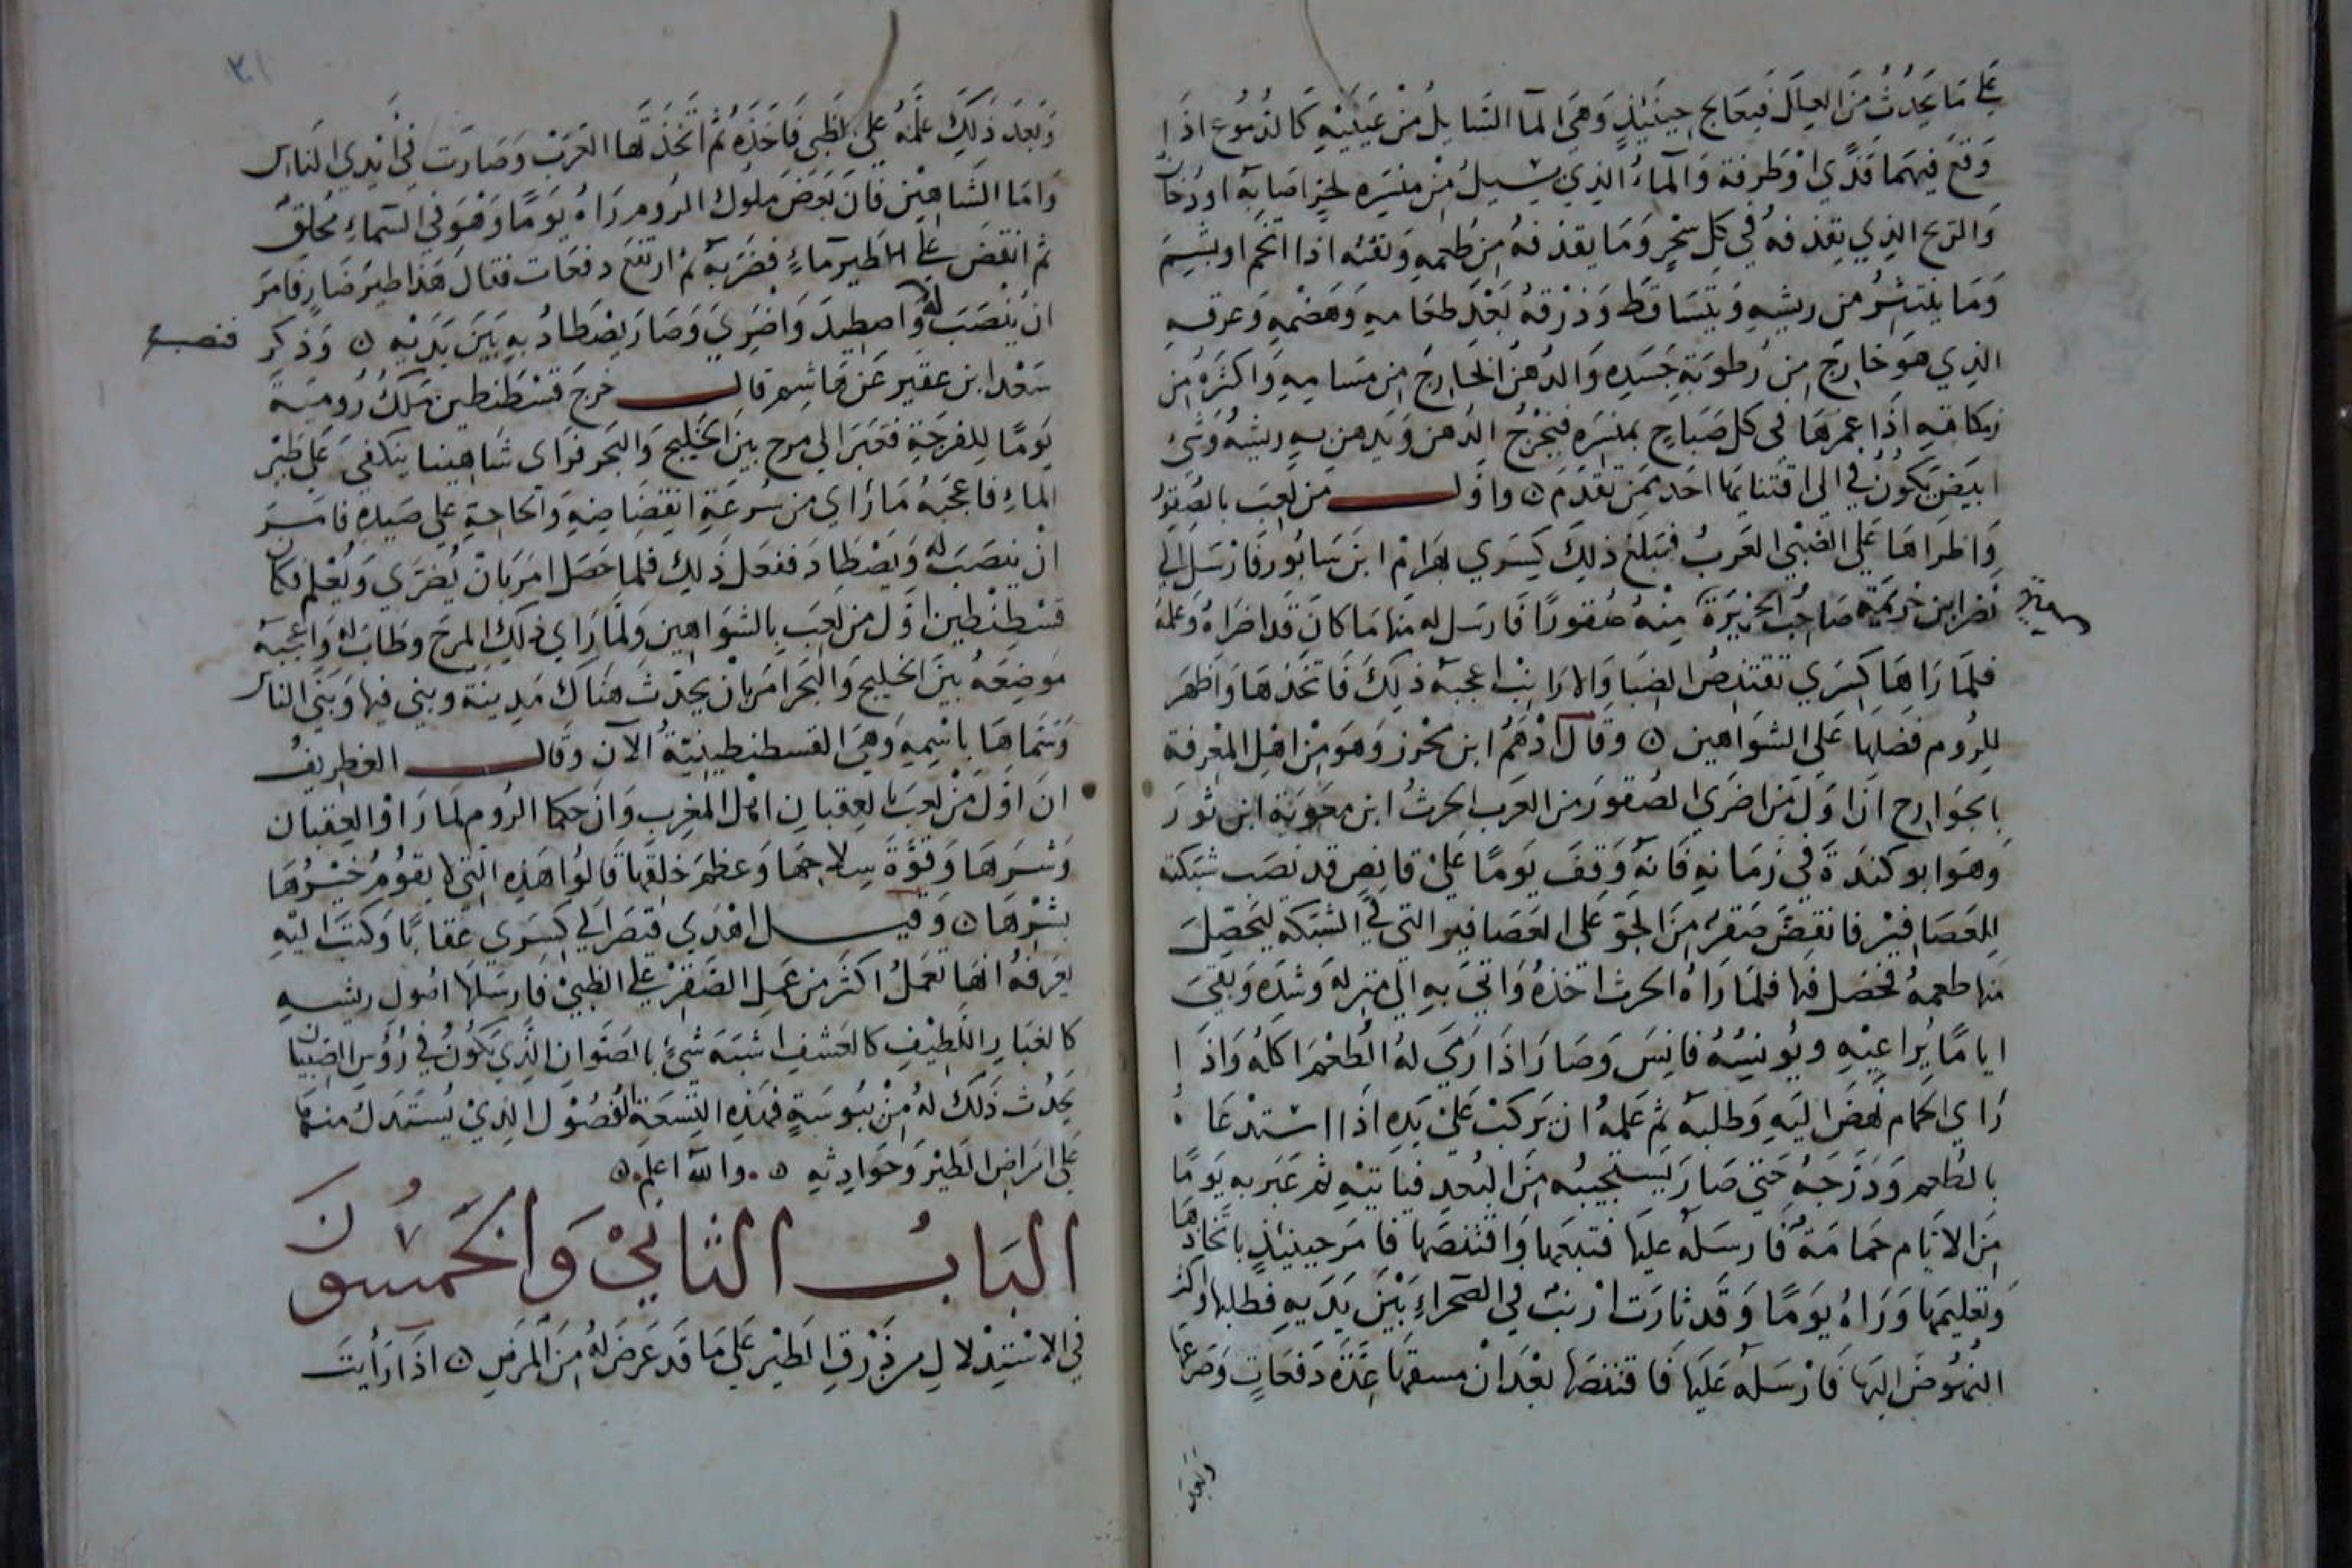 على ما يحدث من العلل فيعالج حينئذ وهي الما السايل من عينيه كالدموع اذا
وقع فيهما قذي او طرفة والماء الذي يسيل من منسره لحر اصابه او دخان
والريح الذي يقذفه في كل سحر وما يقذفه من طعمه ونفثه اذا اتخم او بشم
وما ينتشر من ريشه ويتساقط وذرقه بعد طعامه وهضمه وعرقه
الذي هو خارج من رطوبة جسده والدهن الخارج من مسامه واكثره من
زمكاته اذا عمرها في كل صباح بمنسره فيخرج الدهن ويدهن به ريشه وشئ
ابيض يكون في الى اقتنايها احد ممن تقدم ه واول من لعب بالصقور
واضراها على الضبي العرب فبلغ ذلك كسرى بهرام ابن سابور فارسل الى
نضر ابن خزيمة صاحب الجزيرة منه صقورا فارسل له منها ما كان قد اضراه وعلمه
فلما راها كسرى تقتنص الضبا والارانب اعجبه ذلك فاتخذها واظهر
للروم فضلها على الشواهين ه وقال ادهم ابن محرز وهو من اهل المعرفة
بالجوارح ان اول من اضرى الصقور من العرب الحرث ابن معوية ابن ثور
وهو ابو كندة في زمانه فانه وقف يوما على قانص قد نصب شبكته
للعصافير فانقض صقر من الجو على العصافير التي في الشبكة ليحصل
منها طعمه فحصل فيها فلما راه الحرث اخذه واتى به الى منزله وشده وبقي
اياما يراعيه ويونسه فانس وصار اذا رمي له الطعم اكله واذا
راي الحمام نهض اليه وطلبه ثم علمه ان يركب على يده اذا استدعاه
بالطعم ودرجه حتى صار يستجيبه من البعد فياتيه ثم عبر به يوما
من الايام حمامة فارسله عليها فتبعها واقتنصها فامر حينئذ باتخاذها
وتعليمها وراه يوما وقد ثارت ارنب في الصحراء بين يديه فطلبها واكثر
النهوض اليها فارسله عليها فاقتنصها بعد ان سبقها عدة دفعات وصرعها
وبعد
٣٠١
وبعد ذلك علمه على الظبي فاخذه ثم اتخذ لها العرب وصارت في ايدي الناس
واما الشاهين فان بعض ملوك الروم راه يوما وهو في السماء محلق
ثم انقض على طير ماء فضربه ثم ارتفع دفعات فقال هذا طير ضار فامر
ان ينصب له واصطيد واضري وصار يصطاد به بين يديه ه وذكر
سعد ابن عقير عن هاشم قال خرج قسطنطين ملك رومية
يوما للفرجة فعبر الي مرج بين الخليج والبحر فراى شاهينا ينكفي على طير
الماء فاعجبه ما راي من سرعة انقضاضه والحاحه على صيده فامر
ان ينصب له ويصطاد ففعل ذلك فلما حصل امر بان يضرى ويعلم فكان
قسطنطين اول من لعب بالشواهين ولما راي ذلك المرج وطاب له واعجبه
موضعه بين الخليج والبحر امر بان يحدث هناك مدينة وبني فيها وبني الناس
وسماها باسمه وهي القسطنطينية الآن وقال الغطريف
ان اول من لعب بالعقبان اهل المغرب وان حكما الروم لما راؤ العقبان
وشرها وقوة سلاحها وعظم خلقها قالوا هذه التي لا يقوم خيرها
بشرها ه وقيل اهدي قيصر الي كسرى عقابا وكتب اليه
يعرفه انها تعمل اكثر من عمل الصقر على الظبي فارسلها اصول ريشه
كالغبار اللطيف كالعشف اشبه شئ بالصئوان الذي يكون في رؤس الصبيان
يحدث ذلك له من يبوسة فهذه التسعة الفصول الذي يستدل منها
على امراض الطير وحوادثه ه والله اعلم ه
الباب الثاني والخمسون
في الاستدلال من ذرق الطير على ما قد عرض له من المرض ه اذا رأيت